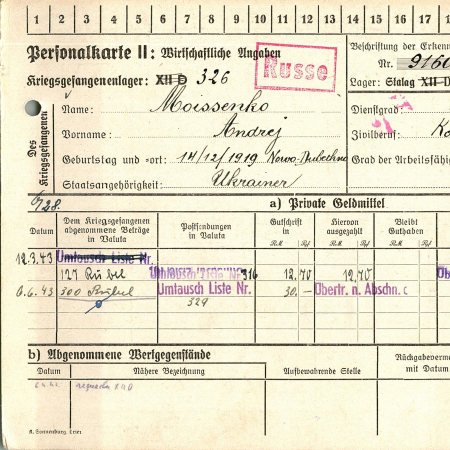 1 2 3 4 5 6 7 8 9 10 11 12 13 14 15 16 17 1
Personalkarte II: Wirtschaftliche Angaben
Russe
Beschriftung der Erkenn
Nr. 9160
Kriegsgefangenenlager: XII D 326
Lager: Stalag XII D
Des Kriegsgefangenen
Name: Moissenko
Dienstgrad:
Vorname: Andrej
Zivilberuf: Ko
Geburtstag und -ort: 14/12/1919
Grad der Arbeitsfähig
Staatsangehörigkeit: Ukrainer
a) Private Geldmittel
Datum
Dem Kriegsgefangenen abgenommene Beträge in Valuta
Postsendungen in Valuta
Gutschrift in
Hiervon ausgezahlt
Bleibt Guthaben
R.M. Rpf R.M. Rpf R.M. Rpf
12.3.43 Umtausch Liste Nr.
127 Rubel 316 12,70 12,70
6.43 300 Rubel Umtausch Liste Nr. 30.- Übertr. n. Abschn. c
329
b) Abgenommene Wertgegenstände
Datum
Nähere Bezeichnung
Aufbewahrende Stelle
Rückgabeverme
mit Datum